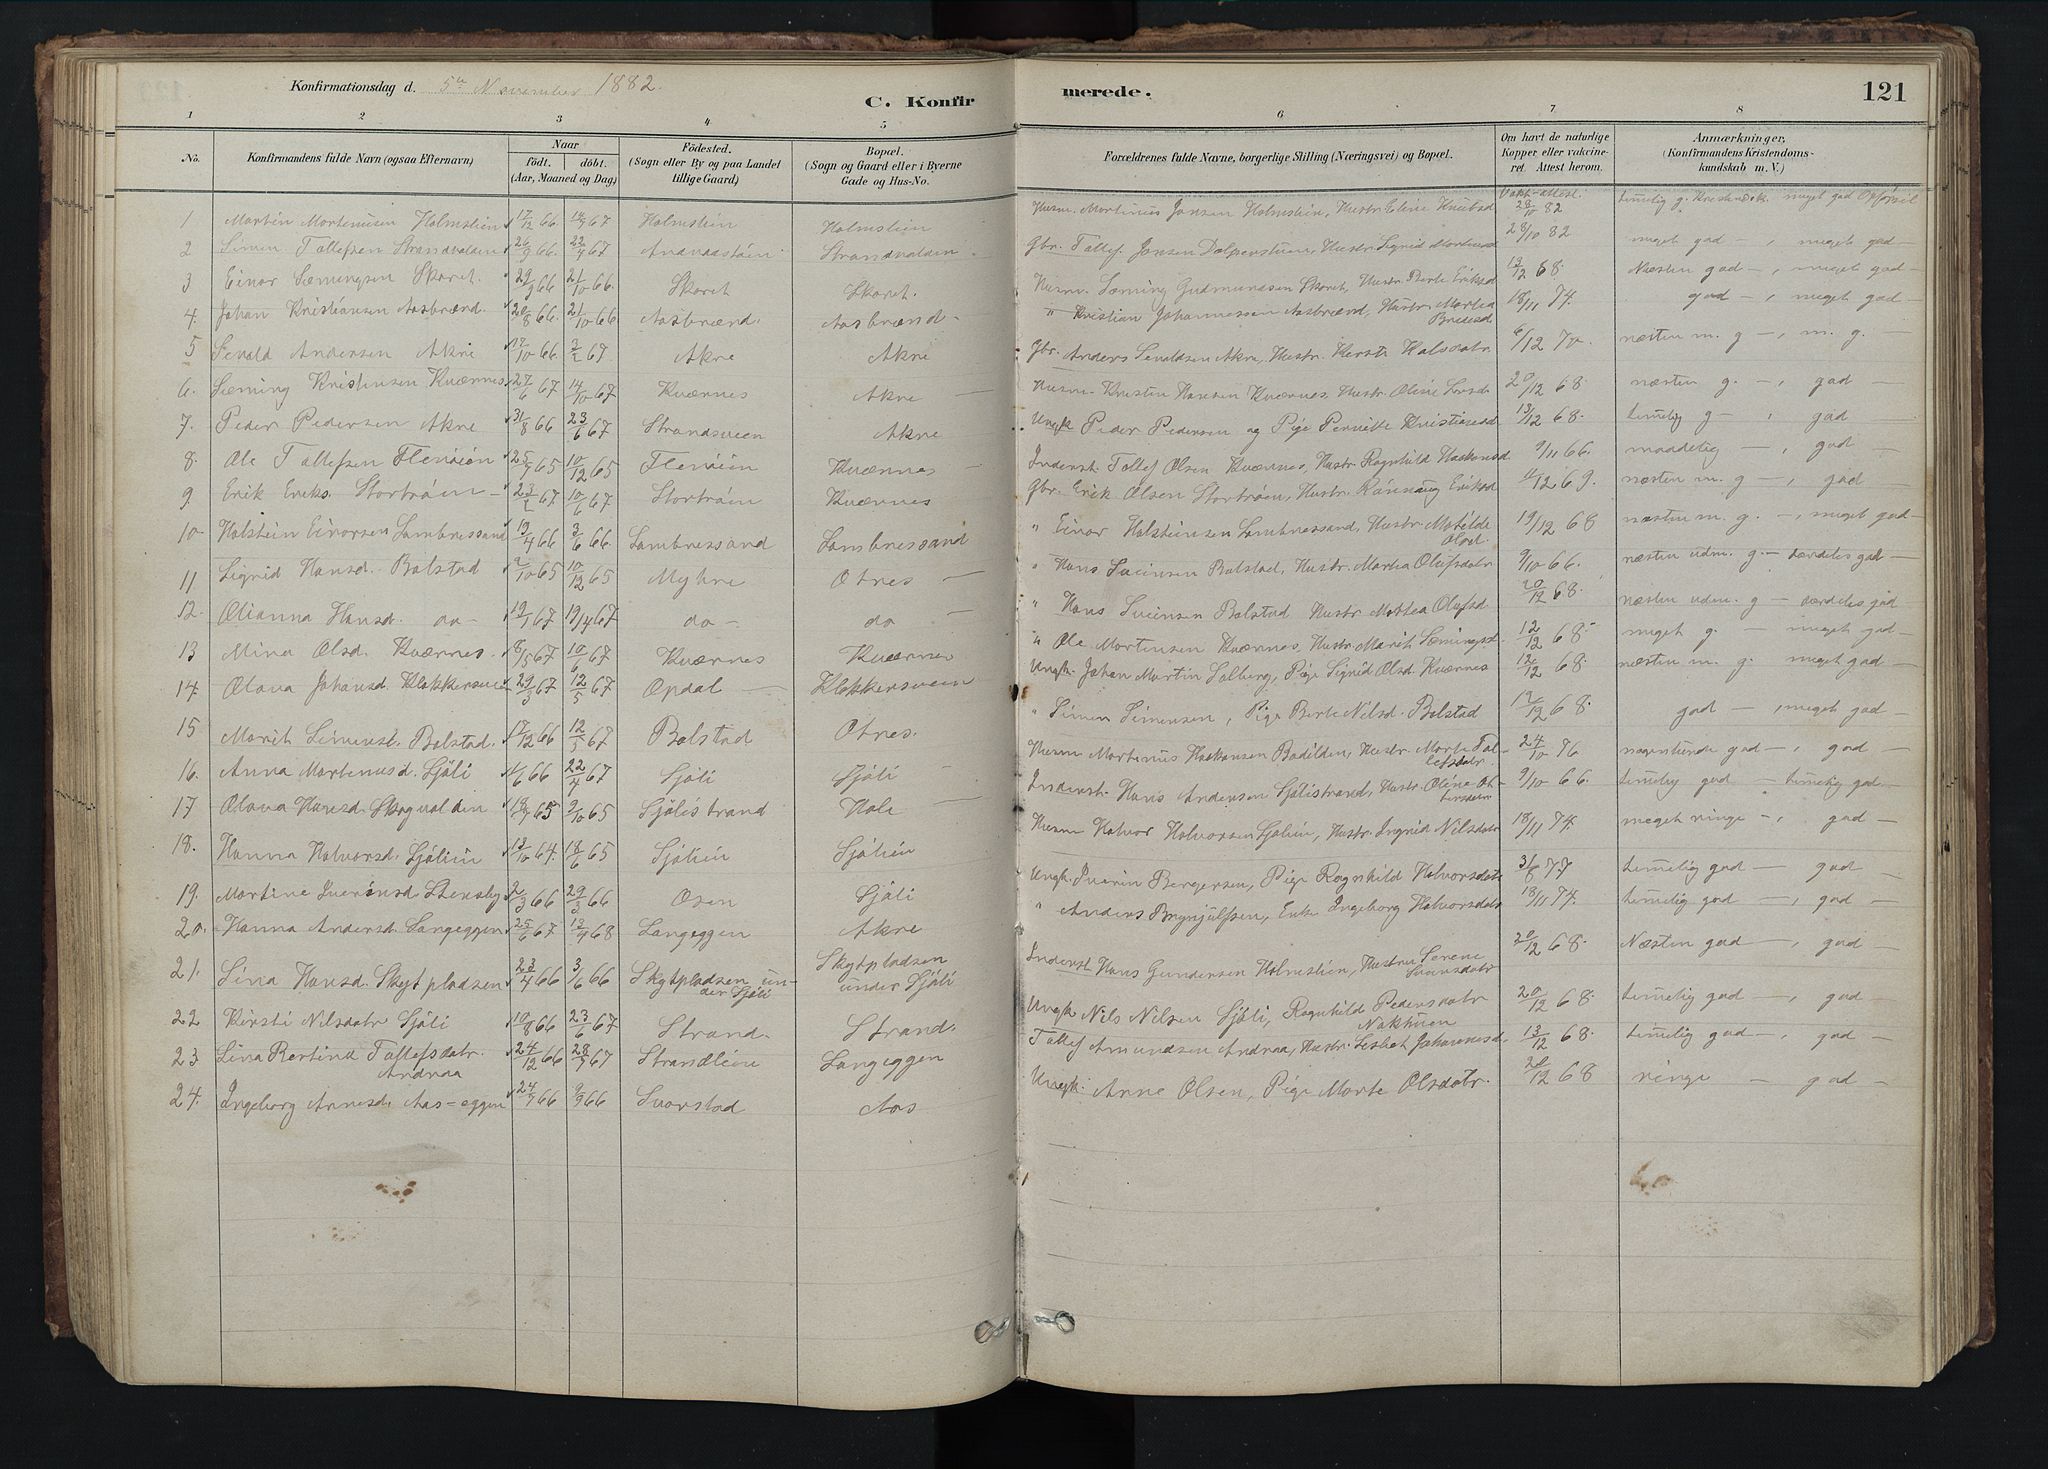 Konfirmationsdag d. 5te November 1882.
C. Konfirmerede.
121
1 2 3 4 5 6 7 8
No.
Konfirmandens fulde Navn (ogsaa Efternavn)
Naar
födt. döbt.
(Aar, Maaned og Dag)
Födested.
(Sogn eller By og paa Landet
tillige Gaard)
Bopæl.
(Sogn og Gaard eller i Byerne
Gade og Hus-No.
Forældrenes fulde Navne, borgerlige Stilling (Næringsvei) og Bopæl.
Om havt de naturlige
Kopper eller vakcine-
ret. Attest herom.
Anmærkninger,
(Konfirmandens Kristendoms-
kundskab m. V.)
1 Martin Martinusen Holmstien 17/12 66 14/4 67 Holmstien Holmstien Husm. Martinus Jansen Holmstien, Hustr. Eline Knutsd 28/10 82 temelig g. Kristendsk. meget god Opförsel
2 Simen Tollefsen Strandvolden 26/9 66 22/4 67 Strandvolden Gbr. Tollef Jonsen, Hustr. Sigrid 28/10 82 meget god —, meget god —
3 Einar Sæmingsen Skaret 29/9 66 21/10 66. Skaret Skaret. Husm. Sæming Gudmundsen Skaret, Hustr. Berte Eriksd 13/12 68 Næsten god —, meget god —
4. Johan Kristiansen Aasbrænd. 20/8 66. 21/10 66. Aasbrænd. Aasbrænd. " Kristian Johannessen Aasbrænd, Hustr. Martea 18/11 74. god —, meget god —
5 Sevald Andersen Akre 67. Akre Akre Gbr. Anders Sevaldsen Akre, Hustr. Kersti Halvdatr 6/12 70 næsten m. g —, m. g.
6. Sæming Kristensen Kværnes 27/6 67 14/10 67 Kværnes Akre Husm. Kristen Hansen Kværnes, Hustr. Oline 20/12 68. næsten g. —, god —
7. Peder Pedersen Akre 31/8 66 23/6 67 Strandsveen Akre Ungk Peder Pedersen og Pige Pernille Kristiansd 13/12 68. temelig g —, god
8. Ole Tollefsen Flenöien 65 10/12 65 Flenöien Kværnes Inderst. Tollef Olsen Kværnes, Hustr. Ragnhild Haakonsd 9/11 66. maadelig —, god —
9. Erik Eriks. Stortröen 67 10/6 67 Stortröen Kværnes Gbr. Erik Olsen Stortröen, Hustr. Rönnaug Eriksd 4/12 69. næsten m. g —, god —
10. Holstein Einarsen Lambnessand 19/4 66 3/6 66. Lambnessand Lambnessand " Einar Holsteinsen Lambnessand, Hustr. Matilde Olsd. 19/12 68 næsten m. g. —, meget god —
11 Sigrid Hansd. Bolstad 65 10/12 65 Myhre Otnes " Hans Sveinsen Bolstad, Hustr. Martea Olufsdatr 9/10 66. næsten udm. g — særdeles god —
12. Olianna Hansd. do — 19/1 67 19/4 67 do — do " Hans Sveinsen Bolstad Hustr. Martea Olufsd. 20/12 68. næsten udm. g — særdeles god
13 Mina Olsd. Kværnes. 8/5 67 10/6 67 Kværnes Kværnes " Ole Mortensen Kværnes, Hustr. Marit Sæmingsd. 12/12 68. meget g. — meget god —
14. Olava Johansd. Klokkersveen 29/3 67 12/5 67 Opdal Klokkersveen Ungk. Johan Martin Solberg, Pige Sigrid Olsd. Kværnes 12/12 68. næsten m. g. meget god —
15 Marit Simensd. Bolstad. 17/12 66 12/5 67 Bolstad Otnes. " Simen Simensen, Pige Berte Nilsd. Bolstad 12/12 68. god —, meget god —
16. Anna Martinusd. Sjöli 66 22/4 67 Sjöli Sjöli Husm Martinus Haakonsen Bodilden, Hustr. Marte Tollefsdatr. 24/10 76 nogenlunde god —, god —
17 Olava Hansd. Skogvolden 65 9/10 65 Sjölistrand Hole Inderst. Hans Andersen Sjölistrand, Hustr. Oline 9/10 66. temelig god — temelig god —
18. Hanna Halvorsd. Sjölien 13/10 64. 18/6 65 Sjölien Sjölien Husm Halvor Halvorsen Sjölien, Hustr. Ingrid Nilsdatr 18/11 74. meget ringe —, god —
19. Martine Iverinsd. Stensby 2/3 66 29/3 66 Osen Sjöli Ungk. Iverin Bergersen, Pige Ragnhild Halvorsdatr 31/8 77 temelig god — god
20. Hanna Andersd. Langeggen 25/6 67 13/4 68 Langeggen Akre " Anders Brynjulfsen, Enke Ingeborg Halvorsdatr 18/11 74. temelig god —, god —
21. Lina Hansd. Skytpladsen 23/4 66 3/6 66 Skytpladsen under Sjöli Skytpladsen under Sjöli Inderst Hans Gundersen Holmstien, Hustru Serene 20/12 68. Næsten god —, god —
22 Kersti Nilsdatr Sjöli 10/8 66 23/6 67 Strand. Strand. Ungk Nils Nilsen Sjöli, Ragnhild Pedersdatr 20/12 68. temelig god —, god —
23 Lina Bertine Tollefsdatr. Andraa 24/12 66 28/7 67 Strandlien Langeggen Tollef Amundsen Andraa, Hustr. Lesbet Johannesd. 13/12 68. temelig god —, god —
24. Ingeborg Arnesd. Aas=eggen 66 9/9 66 Svarstad Aas Ungk. Arne Olsen, Pige Marte Olsdatr. 20/12 68 ringe — god —